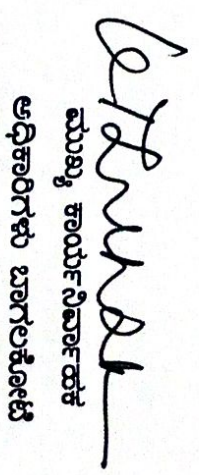 ಮುಖ್ಯ ಕಾರ್ಯನಿರ್ವಾಹಕ
ಅಧಿಕಾರಿಗಳು ಬಾಗಲಕೋಟೆ